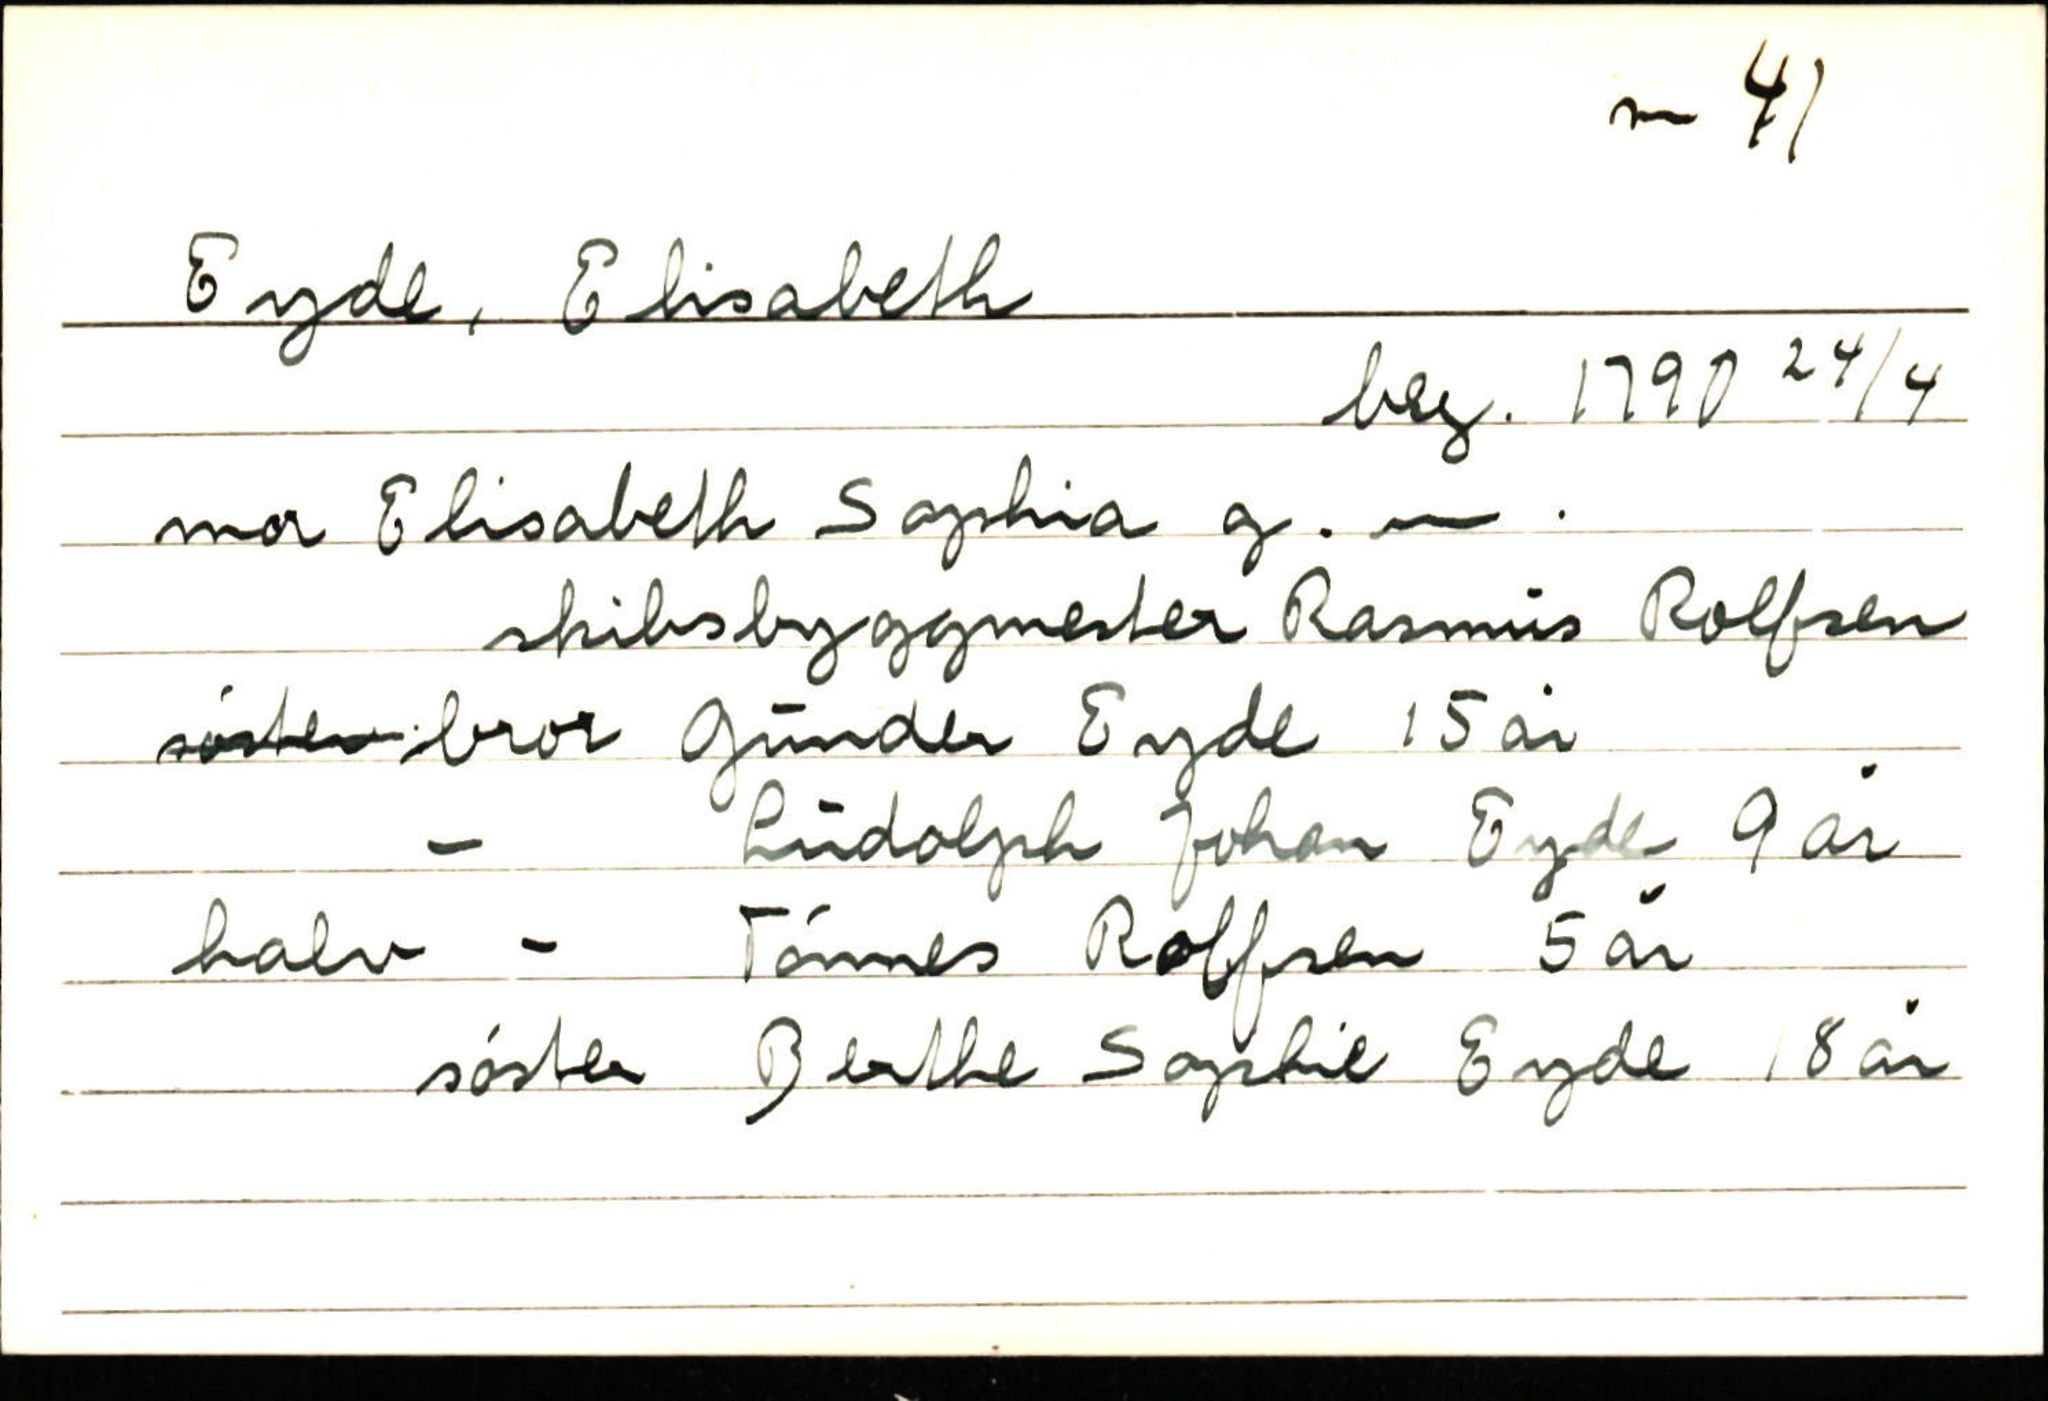 m 41
Eyde, Elisabeth
beg. 1790 24/4
mor Elisabeth Sophia g. m.
skibsbyggmester Rasmus Rolfsen
söster bror Gunder Eyde 15 år
- Ludolph Johan Eyde 9 år
halv - Tönnes Rolfsen 5 år
söster Berthe Sophie Eyde 18 år